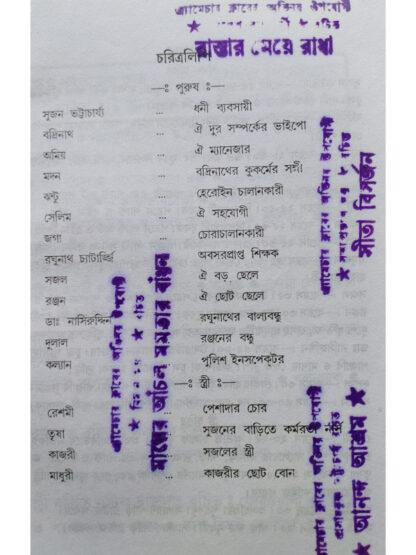 এ্যামেচার ক্লাবের অভিনয় উপযোগী
রাস্তার মেয়ে রাধা
চরিত্রলিপি
—ঃ পুরুষ ঃ—
সুজন ভট্টাচার্য্য ... ধনী ব্যবসায়ী
বদ্রিনাথ ... ঐ দুর সম্পর্কের ভাইপো
অমিয় ... ঐ ম্যানেজার
মদন ... বদ্রিনাথের কুকর্মের সঙ্গী
ঝন্টু ... হেরোইন চালানকারী
সেলিম ... ঐ সহযোগী
জগা ... চোরাচালানকারী
রঘুনাথ চ্যাটার্জ্জি ... অবসরপ্রাপ্ত শিক্ষক
সজল ... ঐ বড় ছেলে
রঞ্জন ... ঐ ছোট ছেলে
ডাঃ নাসিরুদ্দিন ... রঘুনাথের বাল্যবন্ধু
দুলাল ... রঞ্জনের বন্ধু
কল্যান ... পুলিশ ইনসপেক্টর
—ঃ স্ত্রী ঃ—
রেশমী ... পেশাদার চোর
তৃষা ... সুজনের বাড়িতে কর্মরতা নার্স
কাজরী ... সজলের স্ত্রী
মাধুরী ... কাজরীর ছোট বোন
এ্যামেচার ক্লাবের অভিনয় উপযোগী
রচিত
মায়ের আঁচল মমতার বাঁধন
এ্যামেচার ক্লাবের অভিনয় উপযোগী
রচিত
সীতা বিসর্জন
এ্যামেচার ক্লাবের অভিনয় উপযোগী
রচিত
★ আনন্দ আশ্রম ★